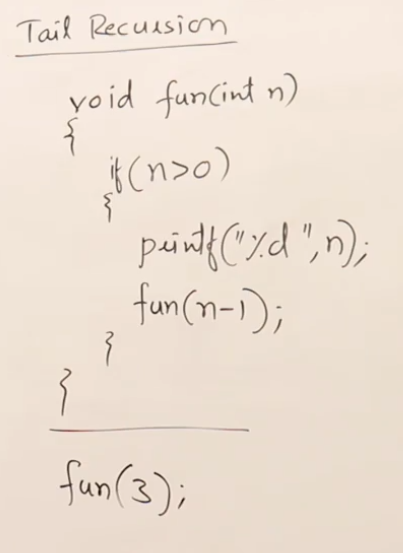 Tail Recursion
void fun(int n)
{
if(n>0)
{
printf("%d ",n);
fun(n-1);
}
}
fun(3);